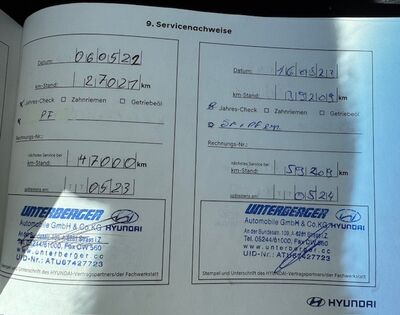 9. Servicenachweise
Datum: 060522
km-Stand: 27027 km
Jahres-Check Zahnriemen Getriebeöl
PF
Rechnungs-Nr.:
nächstes Service bei 47000 km
spätestens am: 0523
UNTERBERGER
Automobile GmbH & Co.KG HYUNDAI
05244/61000, Fax CW 560
www.unterberger.cc
UID-Nr.: ATU67427723
Stempel und Unterschrift des HYUNDAI-Vertragspartners/der Fachwerkstatt
Datum: 160523
km-Stand: 39209 km
Jahres-Check Zahnriemen Getriebeöl
Rechnungs-Nr.:
nächstes Service bei 59209 km
spätestens am: 0524
UNTERBERGER
Automobile GmbH & Co.KG HYUNDAI
An der Bundesstr. 109, A-6281 Strass i.Z
Tel. 05244/61000, Fax DW 560
www.unterberger.cc
UID-Nr.: ATU67427723
Stempel und Unterschrift des HYUNDAI-Vertragspartners/der Fachwerkstatt
HYUNDAI